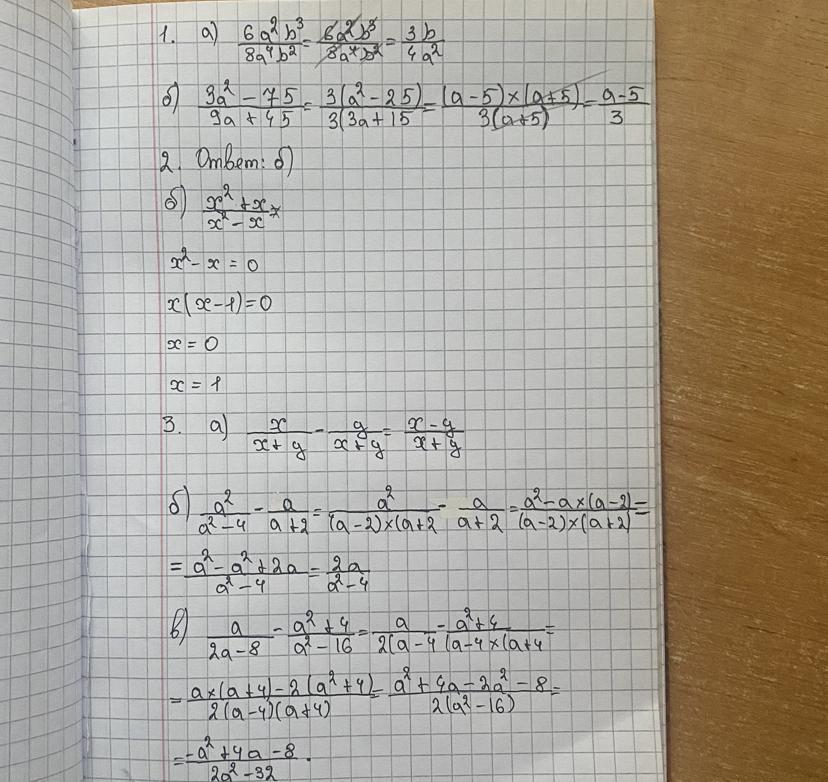 1. а) 6a²b³/8a⁴b² = 6a²b³/8a⁴b² = 3b/4a²
б) 3a² - 75/9a + 45 = 3(a² - 25)/3(3a + 15 = (a - 5)×(a + 5)/3(a + 5) = a - 5/3
2. Ответ: б)
б) x² + x/x² - x
x² - x = 0
x(x - 1) = 0
x = 0
x = 1
3. а) x/x + y - y/x + y = x - y/x + y
б) a²/a² - 4 - a/a + 2 = a²/(a - 2)×(a + 2 - a/a + 2 = a² - a×(a - 2)/(a - 2)×(a + 2) =
= a² - a² + 2a/a² - 4 = 2a/a² - 4
в) a/2a - 8 - a² + 4/a² - 16 = a/2(a - 4 - a² + 4/(a - 4×(a + 4 =
= a×(a + 4) - 2(a² + 4)/2(a - 4)(a + 4) = a² + 4a - 2a² - 8/2(a² - 16) =
= -a² + 4a - 8/2a² - 32.